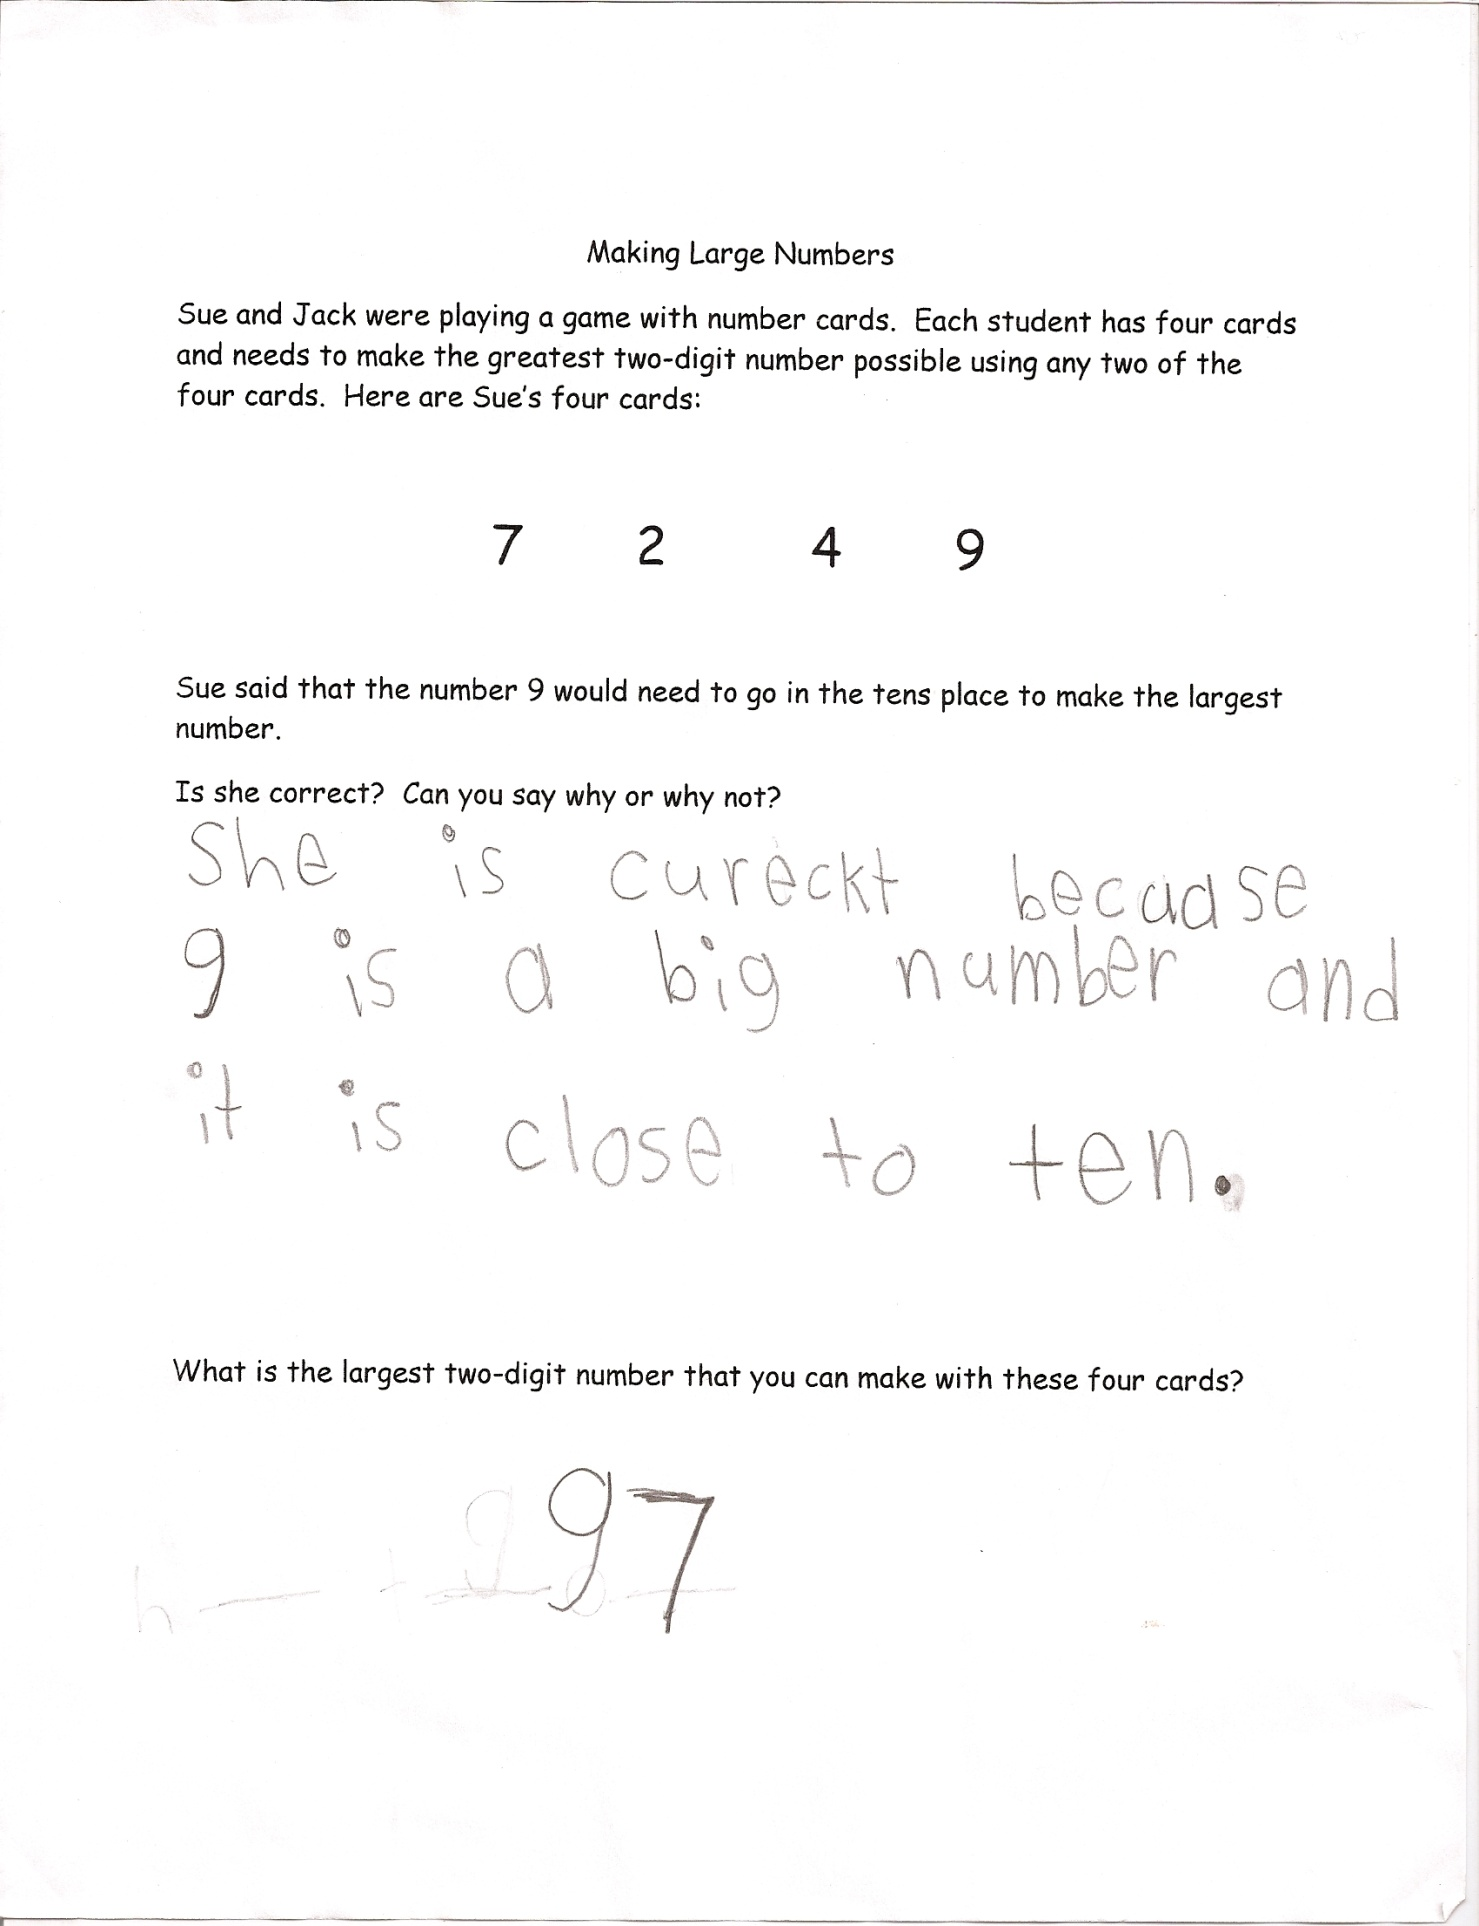 Making Large Numbers
Sue and Jack were playing a game with number cards. Each student has four cards
and needs to make the greatest two-digit number possible using any two of the
four cards. Here are Sue's four cards:
7 2 4 9
Sue said that the number 9 would need to go in the tens place to make the largest
number.
Is she correct? Can you say why or why not?
She is cureckt becaase
9 is a big number and
it is close to ten.
What is the largest two-digit number that you can make with these four cards?
97